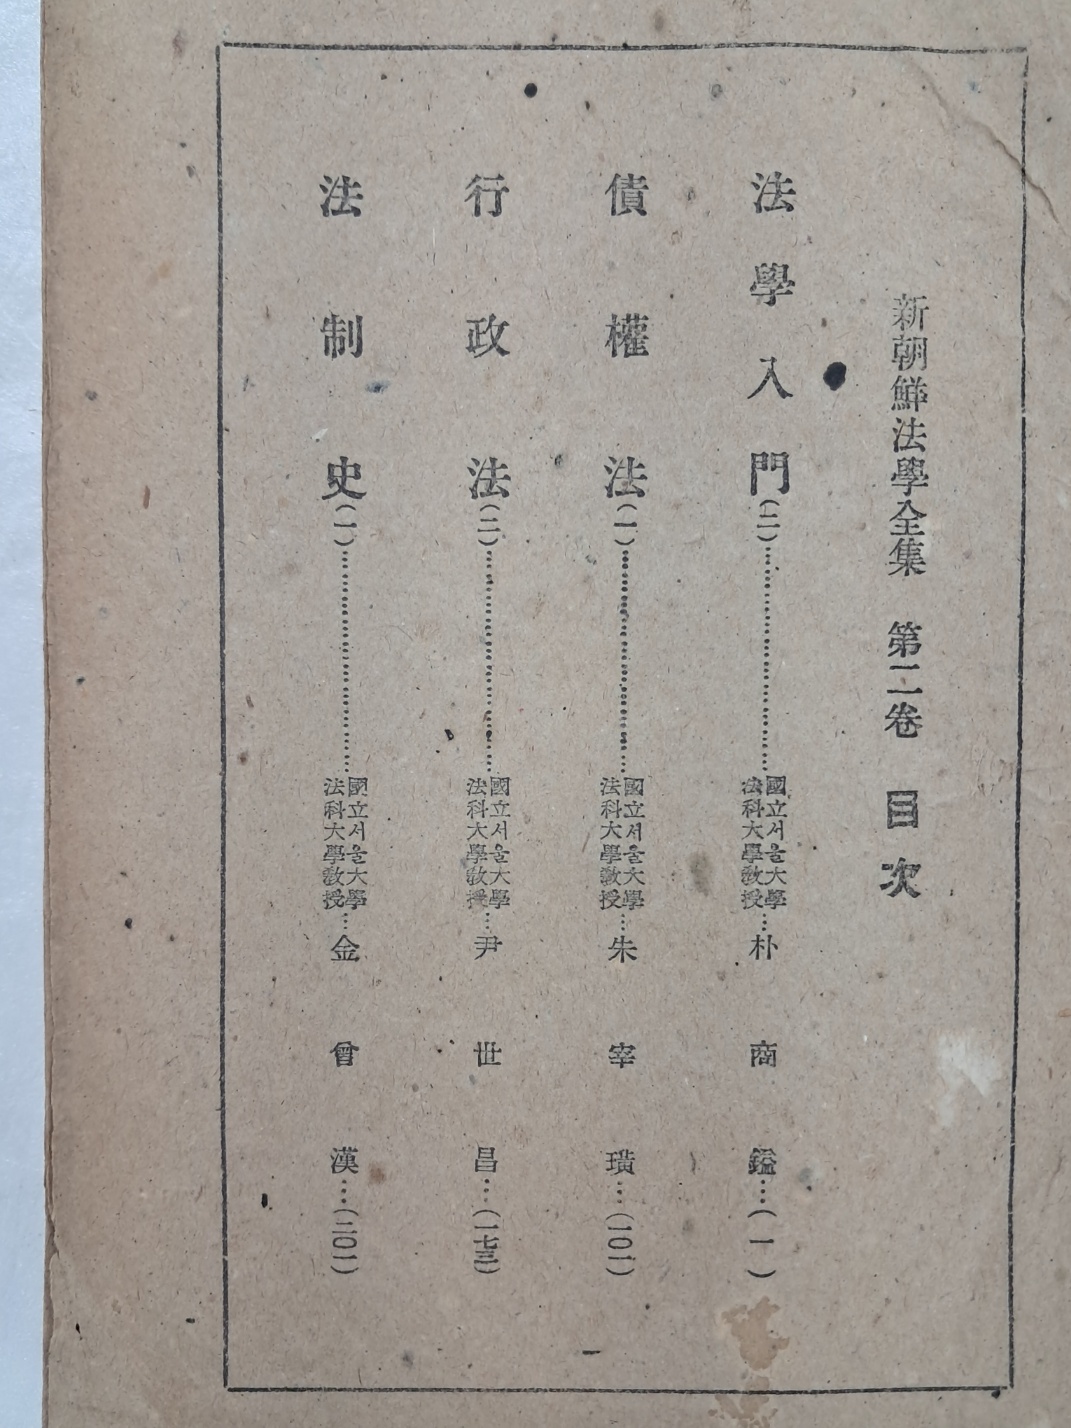 新朝鮮法學全集 第二卷 目次
法學入門(二)……國立서울大學法科大學敎授…朴商鎰…(一)
債權法(一)……國立서울大學法科大學敎授…朱宰璜…(一〇一)
行政法(二)……國立서울大學法科大學敎授…尹世昌…(一七三)
法制史(一)……國立서울大學法科大學敎授…金曾漢…(二〇一)
一